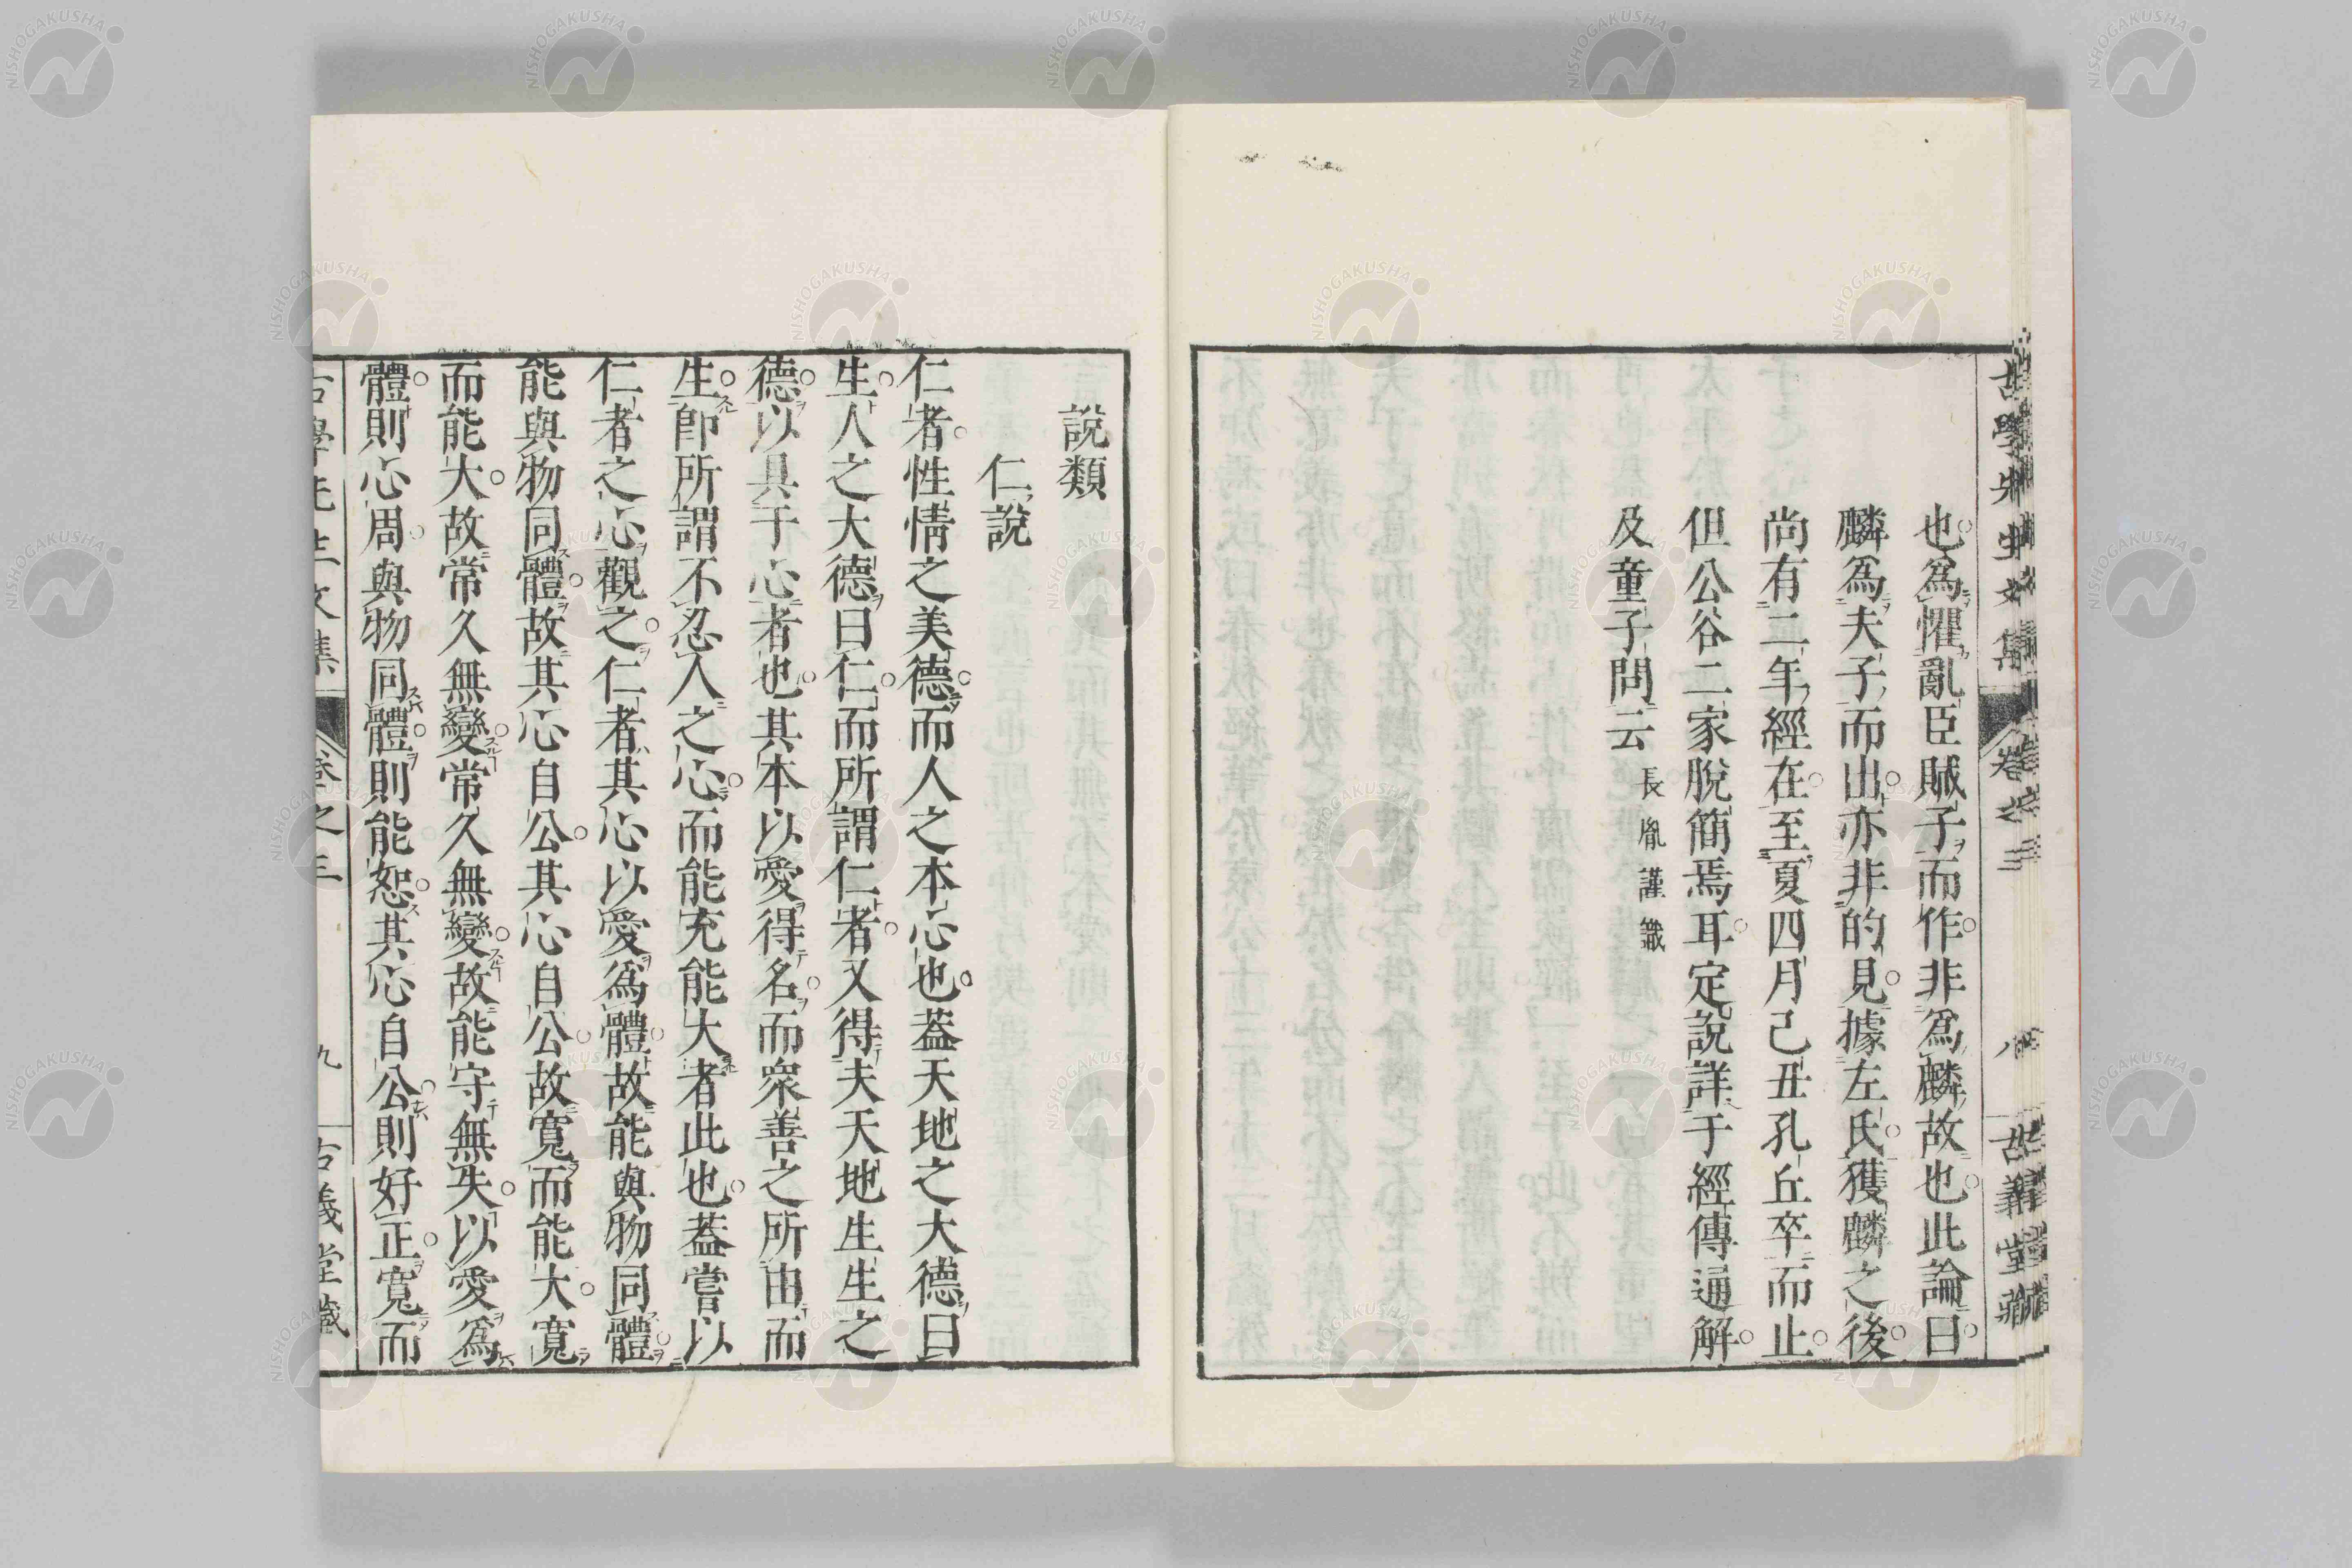 古學先生文集 卷之三 八 古義堂藏
也爲懼亂臣賊子而作非爲麟故也此論曰
麟爲夫子而出亦非的見據左氏獲麟之後
尚有二年經在至夏四月己丑孔丘卒而止
但公谷二家脫簡焉耳定說詳于經傳通解
及童子問云 長胤謹識
說類
仁說
仁者性情之美德而人之本心也蓋天地之大德曰
生人之大德曰仁而所謂仁者又得夫天地生生之
德以具于心者也其本以愛得名而衆善之所由而
生卽所謂不忍人之心而能充能大者此也蓋嘗以
仁者之心觀之仁者其心以愛爲體故能與物同體
能與物同體故其心自公其心自公故寬而能大寬
而能大故常久無變常久無變故能守無失以愛爲
體則心周與物同體則能恕其心自公則好正寬而
古學先生文集 卷之三 九 古義堂藏
NISHOGAKUSHA